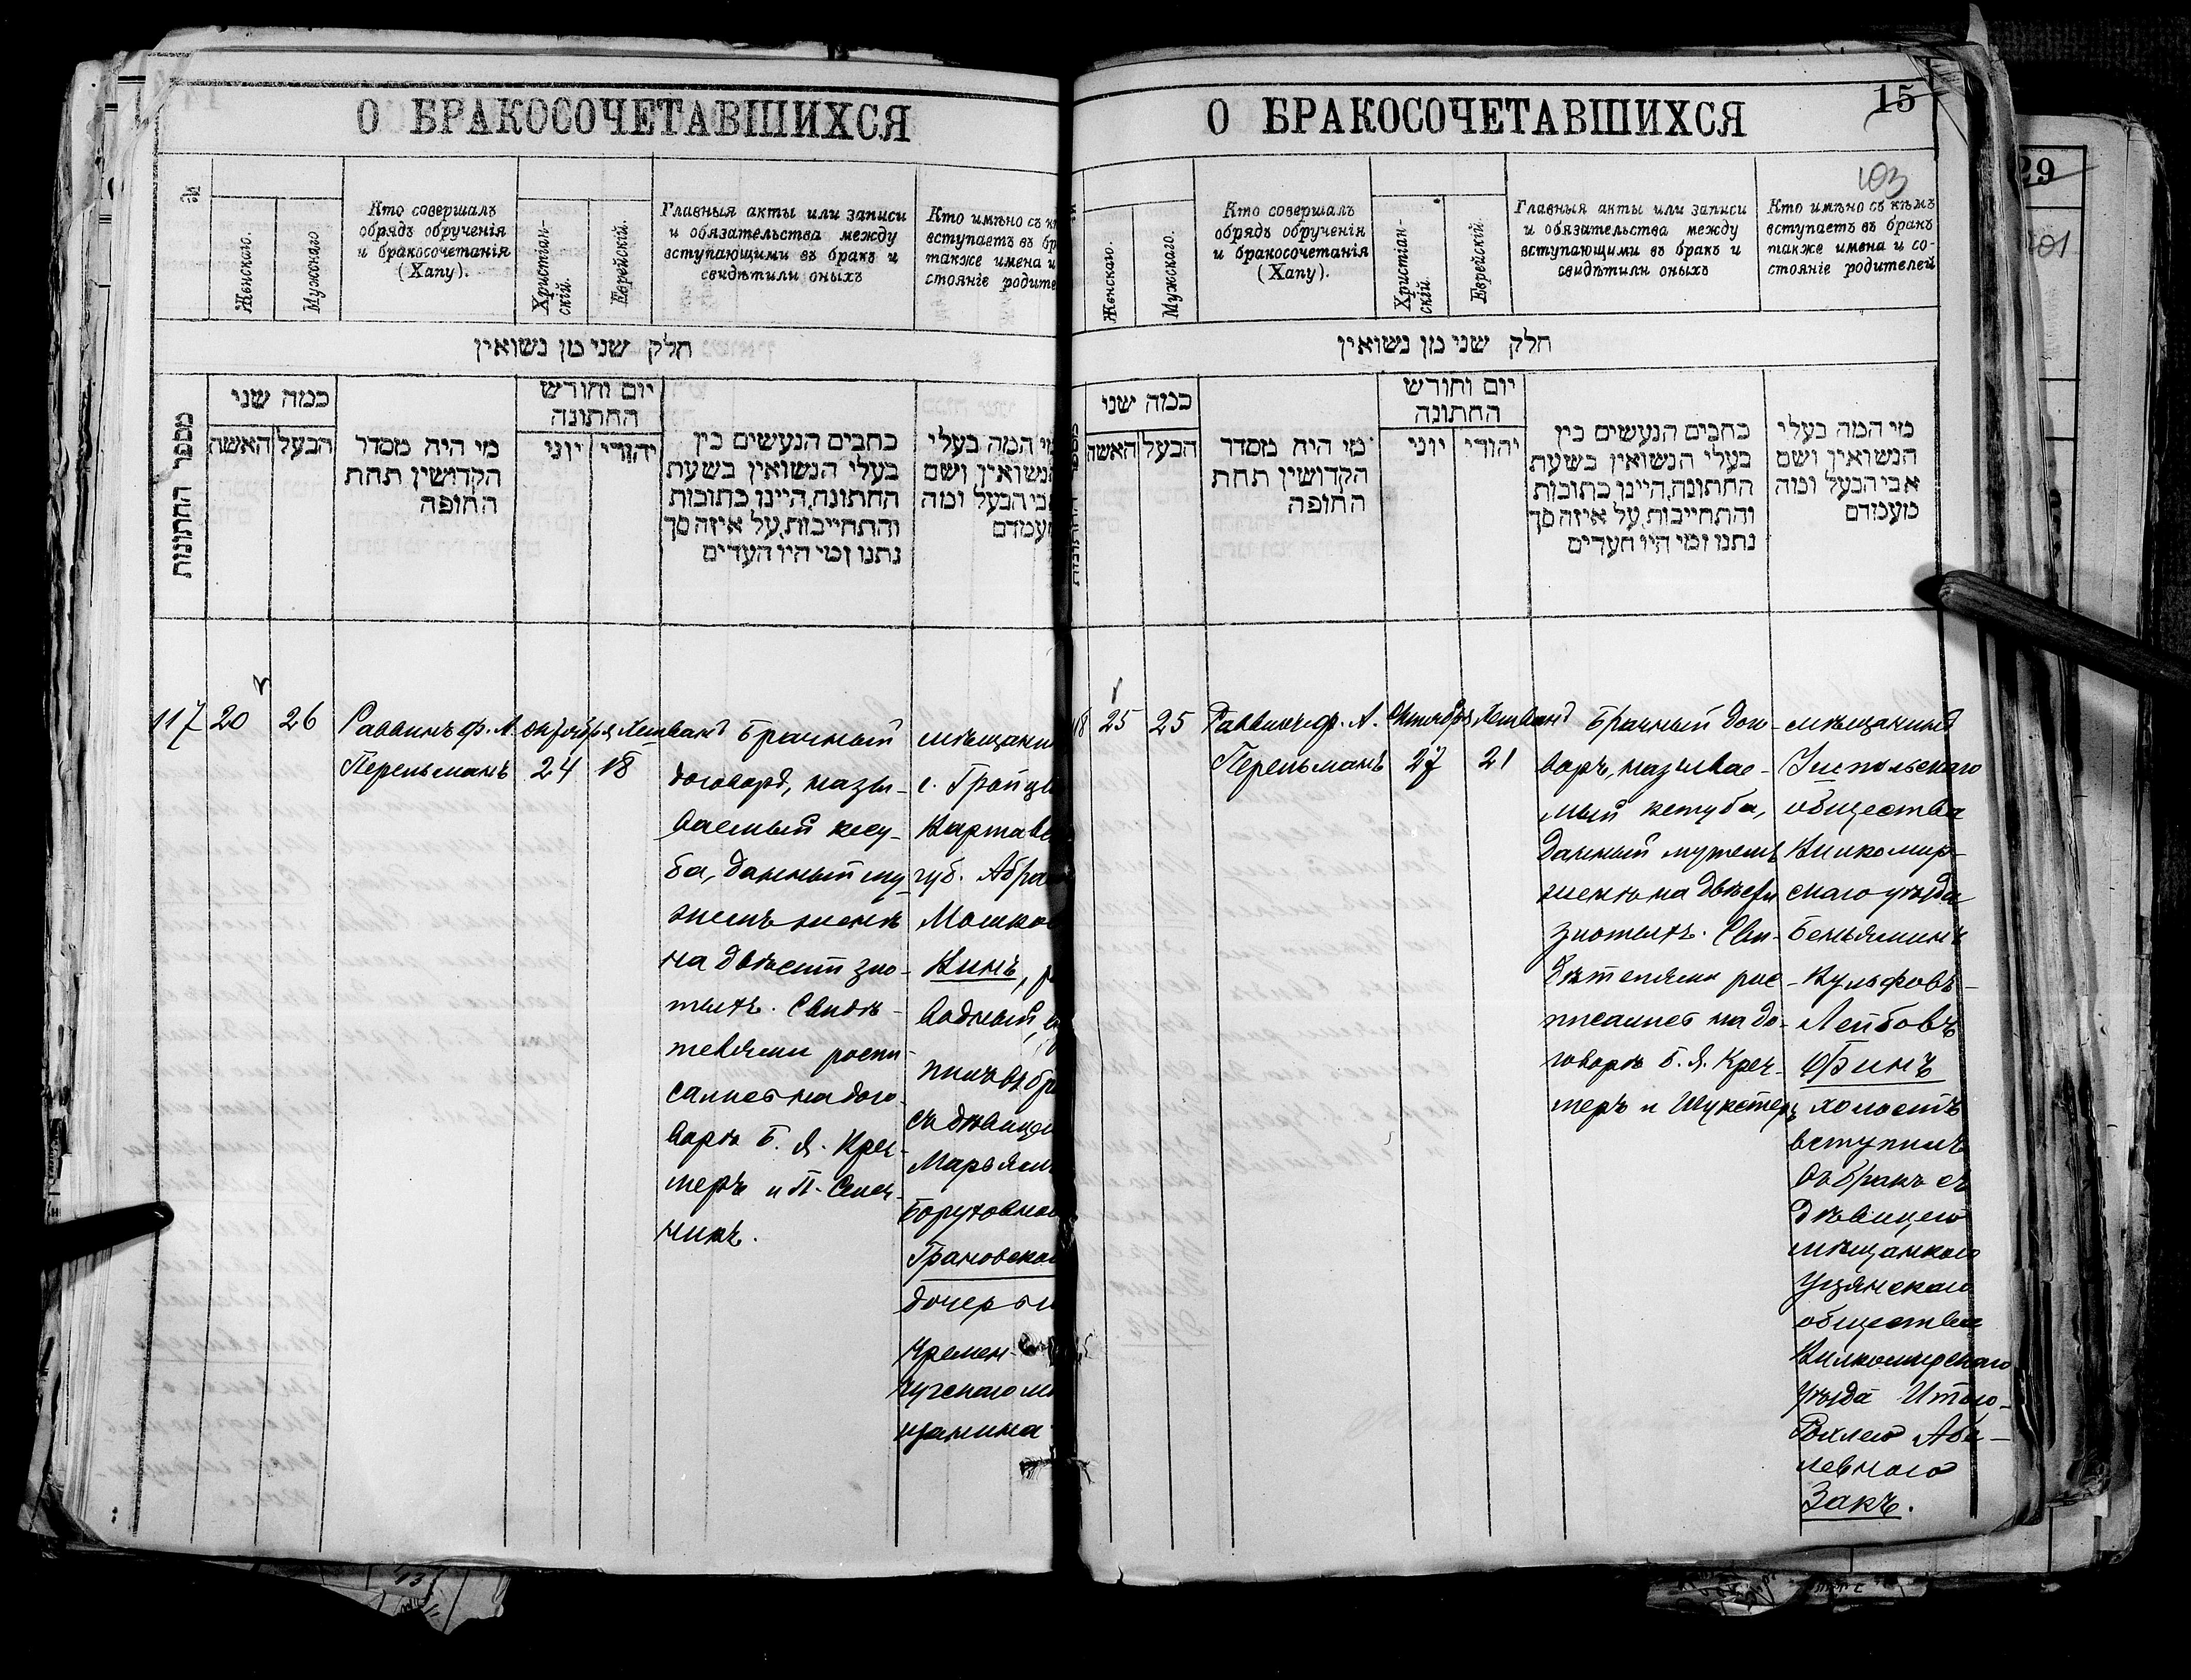 О БРАКОСОЧЕТАВШИХСЯ
№
Женскаго.
Мужскаго
Кто совершалъ
обрядъ обрученія
и бракосочетанія
(Хапу).
Христіан-
скій.
Еврейскій.
Главныя акты или записи
и обязательства между
вступающими въ бракъ и
свидѣтили оныхъ
Кто имѣно съ
вступаетъ въ
также имена и
стояніе
חלק שני מן נשואין
מספר החתונות
כמה שני
האשה
הבעל
מי היה מסדר
הקדושין תחת
החופה
יום וחורש
החתונה
יוני
יהודי
כתבים הנעשים בין
בעלי הנשואין בשעת
החתונה, היינו כתובות
והתחייבות, על איזה סך
נתנו ומי היו העדים
המה בעלי
ושם
ומה
117
20
26
Раввинъ ф. А.
Перельманъ
Октября
24
Хешванъ
18
Брачный
договоръ, назы-
ваемый кесу-
ба, данный му-
жемъ женѣ
на двѣсти зло-
тыхъ. Свидѣ-
телями роспи-
сались на дого-
ворѣ Б. Я. Кре-
меръ и П.
с.
губ.
Кинъ,
съ дѣвицею
Грановскою
дочерью
Кремен-
чугскаго
щанина
О БРАКОСОЧЕТАВШИХСЯ
15
103
Женскаго.
Мужскаго.
Кто совершалъ
обрядъ обрученія
и бракосочетанія
(Хапу).
Христіан-
скій.
Еврейскій.
Главныя акты или записи
и обязательства между
вступающими въ бракъ и
свидѣтили оныхъ
Кто имѣно съ кѣмъ
вступаетъ въ бракъ
также имена и со-
стояніе родителей
חלק שני מן נשואין
כמה שני
האשה
הבעל
מי היה מסדר
הקדושין תחת
החופה
יום וחורש
החתונה
יוני
יהודי
כתבים הנעשים בין
בעלי הנשואין בשעת
החתונה, היינו כתובות
והתחייבות, על איזה סך
נתנו ומי היו העדים
מי המה בעלי
הנשואין ושם
אבי הבעל ומה
מעמדם
25
25
Раввинъ ф. А.
Перельманъ
Октября
27
Хешванъ
21
Брачный дого-
воръ, называе-
мый кетуба,
данный мужемъ
женѣ на двѣсти
злотыхъ. Сви-
дѣтелями рос-
писались на до-
говорѣ Б. Я. Кре-
меръ и Шустеръ
мѣщанинъ
Ушпольскаго
общества
Вилкомир-
скаго уѣзда
Беньяминъ
Вульфовъ-
Лейбовъ
Финъ
холостъ
вступилъ
въ бракъ съ
дѣвицею
мѣщанкою
Уцянскаго
общества
Вилкомирскаго
уѣзда Итою-
Рохлею Абе-
левною
Закъ.
29
101